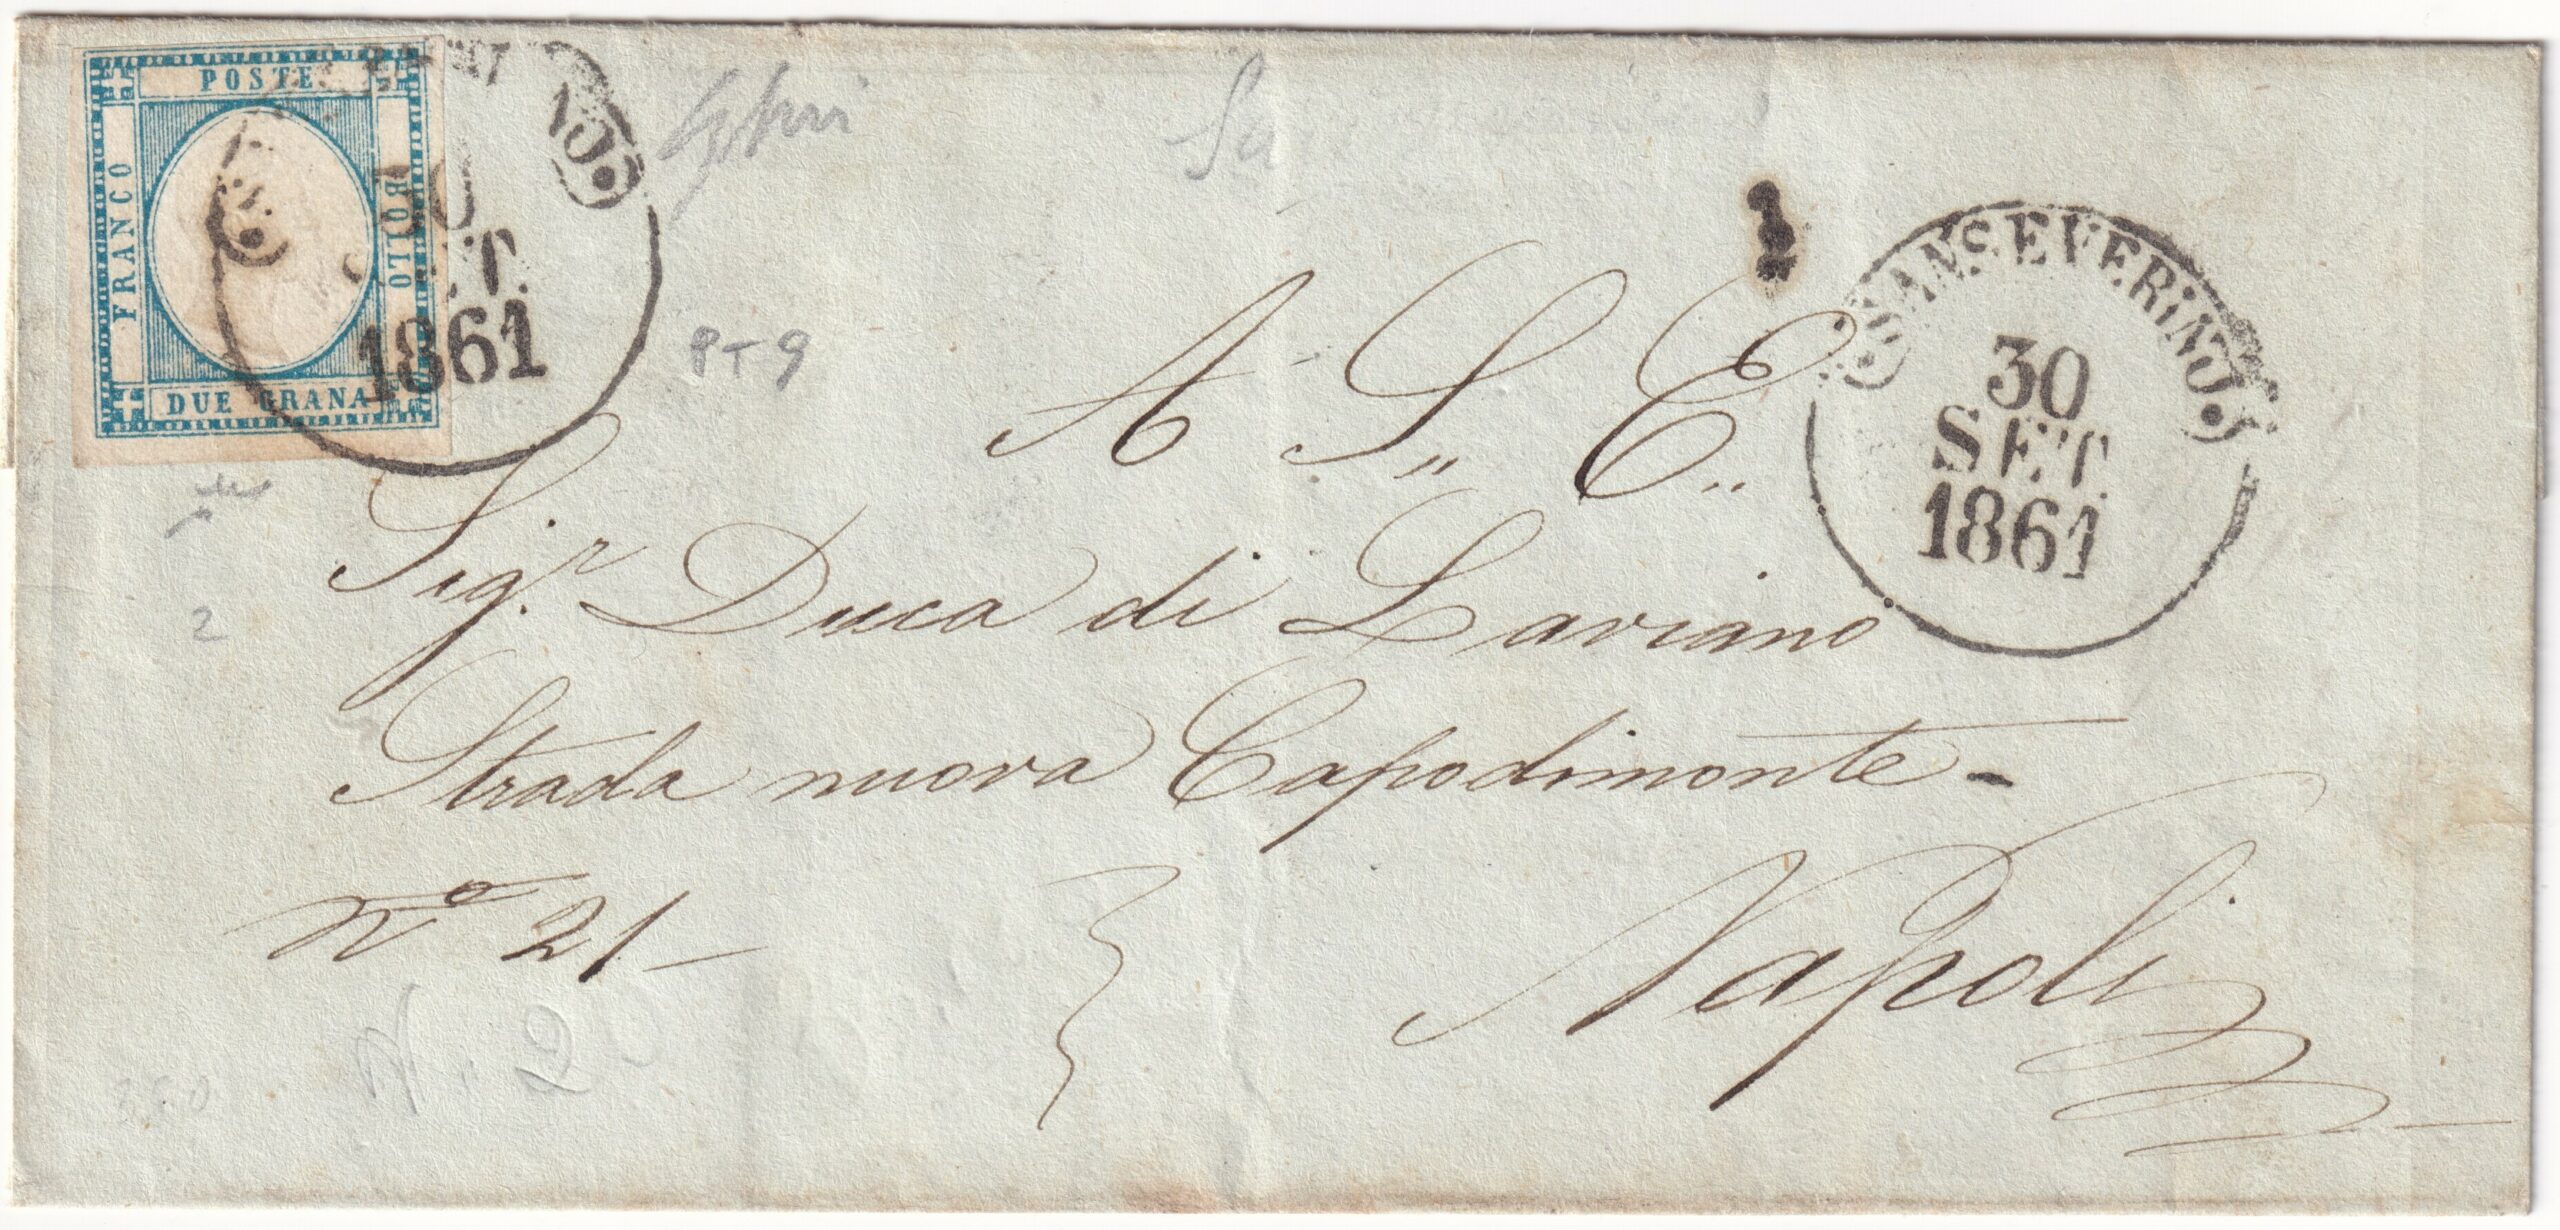 POSTE
FRANCO
BOLLO
DUE GRANA
30
SET.
1861
SANSEVERINO
30
SET.
1861
PT 9
2
A S. E.
Sig.r Duca di Laviano
Strada nuova Capodimonte -
No 21 -
Napoli
N. 2